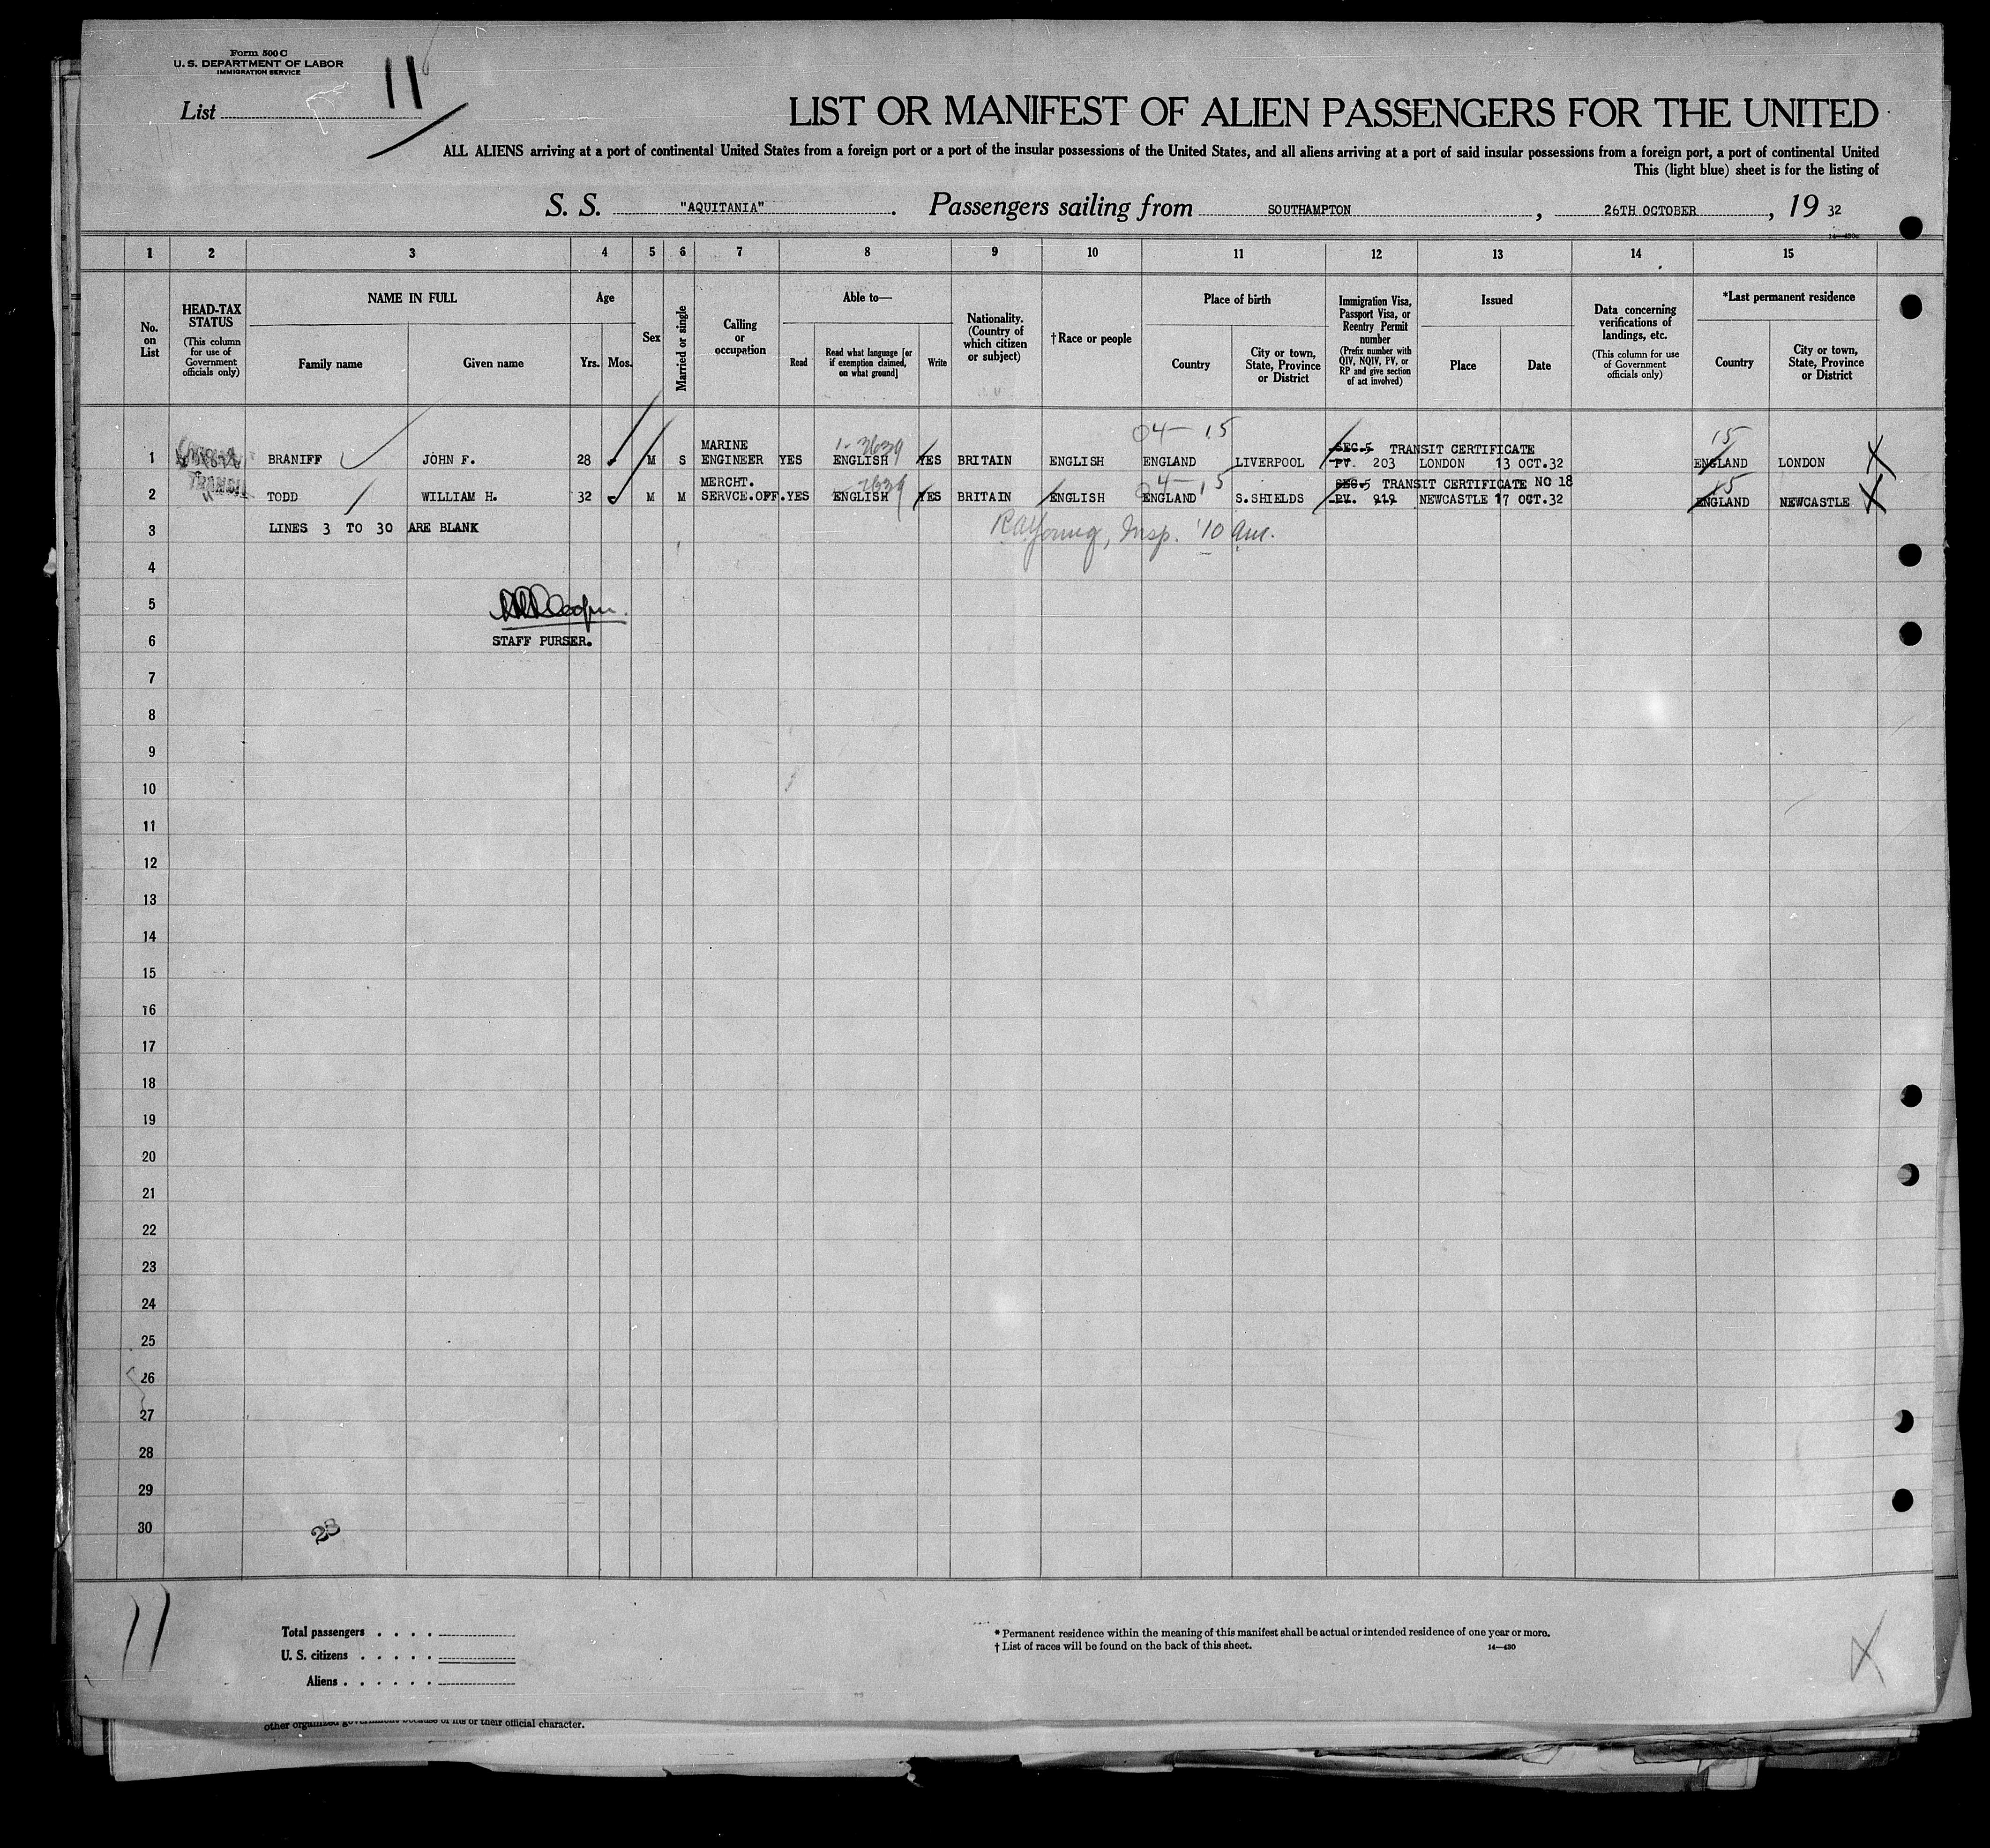 Form 500 C
U. S. DEPARTMENT OF LABOR
IMMIGRATION SERVICE
List 11
LIST OR MANIFEST OF ALIEN PASSENGERS FOR THE UNITED
ALL ALIENS arriving at a port of continental United States from a foreign port or a port of the insular possessions of the United States, and all aliens arriving at a port of said insular possessions from a foreign port, a port of continental United
This (light blue) sheet is for the listing of
S. S. "AQUITANIA". Passengers sailing from SOUTHAMPTON, 26TH OCTOBER, 19 32
1 2 3 4 5 6 7 8 9 10 11 12 13 14 15
No. on List
HEAD-TAX STATUS
(This column for use of Government officials only)
NAME IN FULL
Family name
Given name
Age
Yrs. Mos.
Sex
Married or single
Calling or occupation
Able to—
Read
Read what language [or if exemption claimed, on what ground]
Write
Nationality. (Country of which citizen or subject)
†Race or people
Place of birth
Country
City or town, State, Province or District
Immigration Visa, Passport Visa, or Reentry Permit number
(Prefix number with QIV, NQIV, PV, or RP and give section of act involved)
Issued
Place
Date
Data concerning verifications of landings, etc.
(This column for use of Government officials only)
*Last permanent residence
Country
City or town, State, Province or District
04— 15 15
MARINE 1-2639 SEC.5 TRANSIT CERTIFICATE
1 BRANIFF JOHN F. 28 M S ENGINEER YES ENGLISH YES BRITAIN ENGLISH ENGLAND LIVERPOOL PV. 203 LONDON 13 OCT.32 ENGLAND LONDON
TRANSIT MERCHT. 2639 04— 15 SEC.5 TRANSIT CERTIFICATE NO 18 15
2 TODD WILLIAM H. 32 M M SERVCE.OFF. YES ENGLISH YES BRITAIN ENGLISH ENGLAND S.SHIELDS PV. 919 NEWCASTLE 17 OCT.32 ENGLAND NEWCASTLE
3 LINES 3 TO 30 ARE BLANK Young, Insp. 10 am.
4
5
6 STAFF PURSER.
7
8
9
10
11
12
13
14
15
16
17
18
19
20
21
22
23
24
25
26
27
28
29
30
23
11
Total passengers . . . .
U. S. citizens . . . . .
Aliens . . . . . .
* Permanent residence within the meaning of this manifest shall be actual or intended residence of one year or more.
† List of races will be found on the back of this sheet. 14—430
other organized government because of his or their official character.